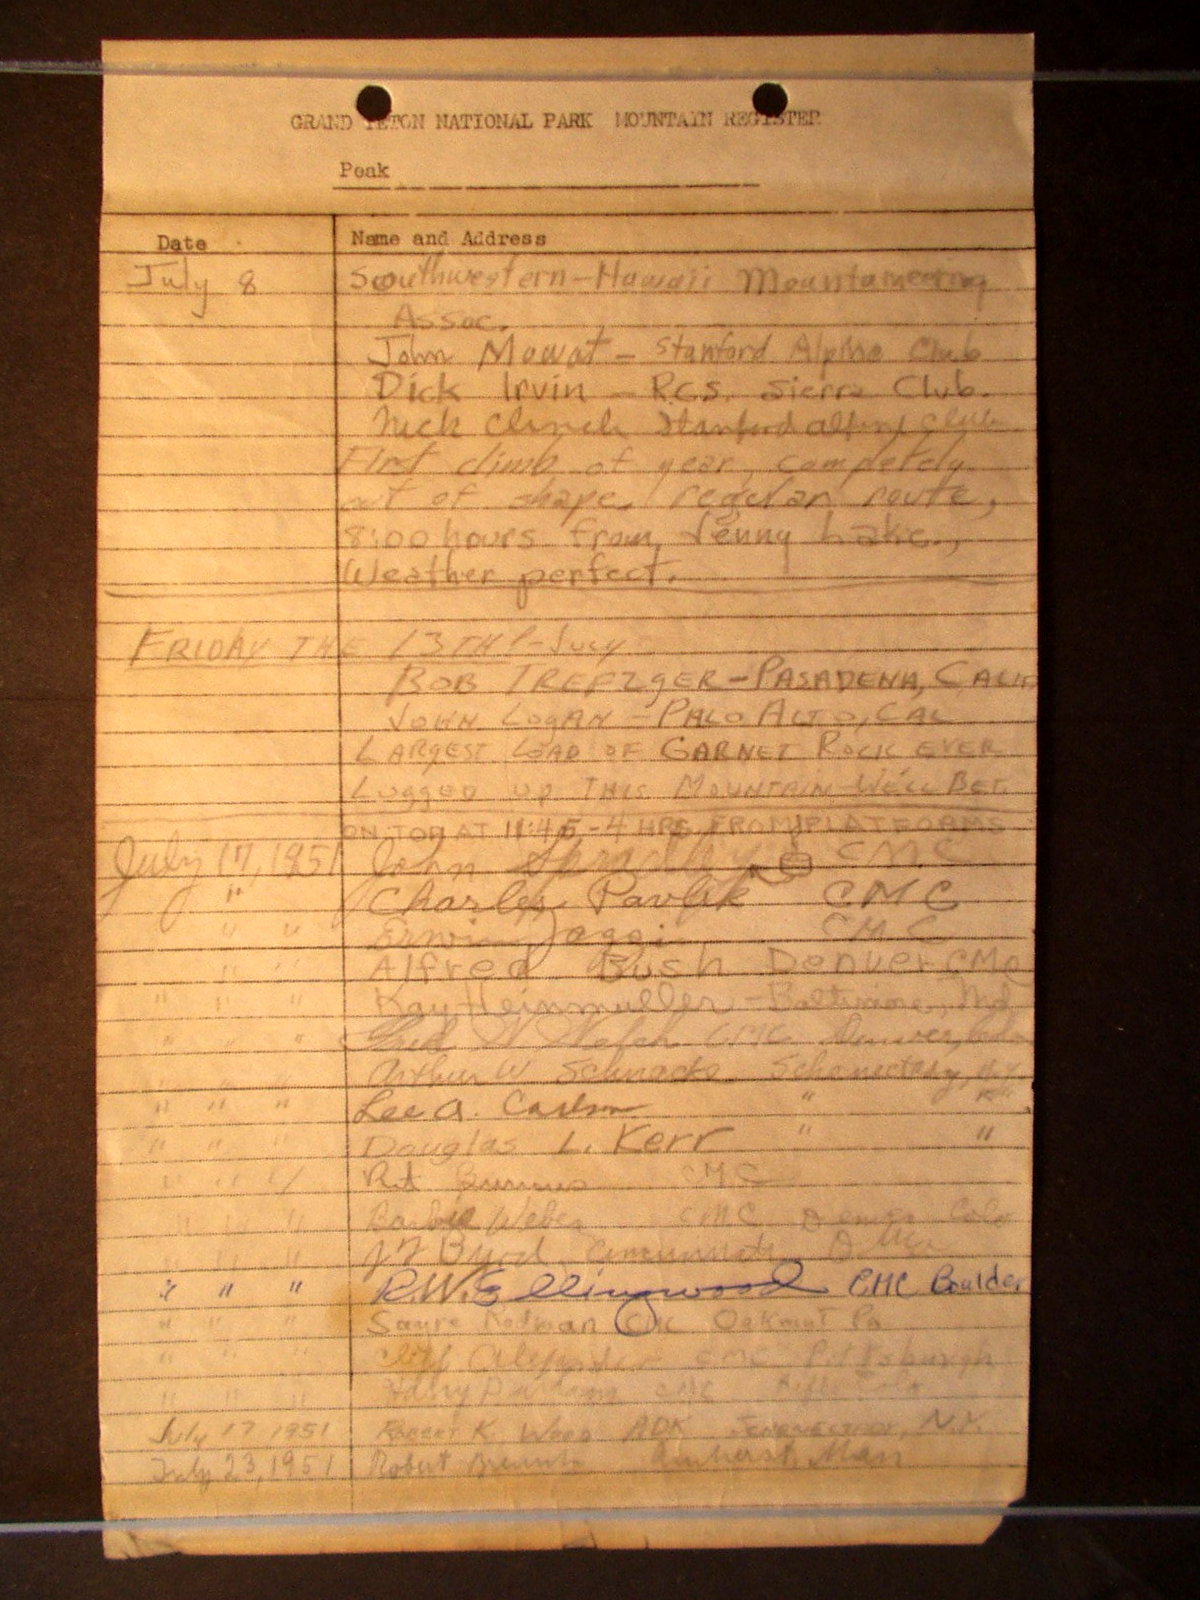 GRAND TETON NATIONAL PARK MOUNTAIN REGISTER
Peak
Date Name and Address
July 8 Southwestern-Hawaii Mountaineering
Assoc.
John Mowat - Stanford Alpine Club
Dick Irvin - R.C.S. Sierra Club.
Nick Clinch Stanford Alpine Club
First climb of year, competely
out of shape, regular route,
8:00 hours from Jenny Lake.,
Weather perfect.
FRIDAY THE 13TH!-July
BOB TREFZGER-PASADENA, CALIF
JOHN LOGAN - PALO ALTO, CAL
LARGEST LOAD OF GARNET ROCK EVER
LUGGED UP THIS MOUNTAIN WE'LL BET
ON TOP AT 11:45 - 4 HRS FROM PLATFORMS
July 17, 1951 John Spradley CMC
" Charles Pavlik CMC
" " Erwin Jaggi CMC
" " Alfred Bush Denver CMC
" " " Kay Heinmuller - Baltimore, Md
" " " W. CMC Denver,
" " " Arthur W Schnacke Schenectady, N.Y.
" " " Lee A. Carlson " "
" " " Douglas L. Kerr " "
" " " CMC
" " " Weber CMC Denver Colo
" " " Byrd Cincinnati, Ohio
" " " R.W. Ellingwood CMC Boulder
" " " Sayre Rodman CMC Oakmont Pa
" " " CMC Pittsburgh
" " " CMC
July 17 1951 K. Wood ADK SCHENECTADY, N.Y.
July 23, 1951 Robert Amherst, Mass